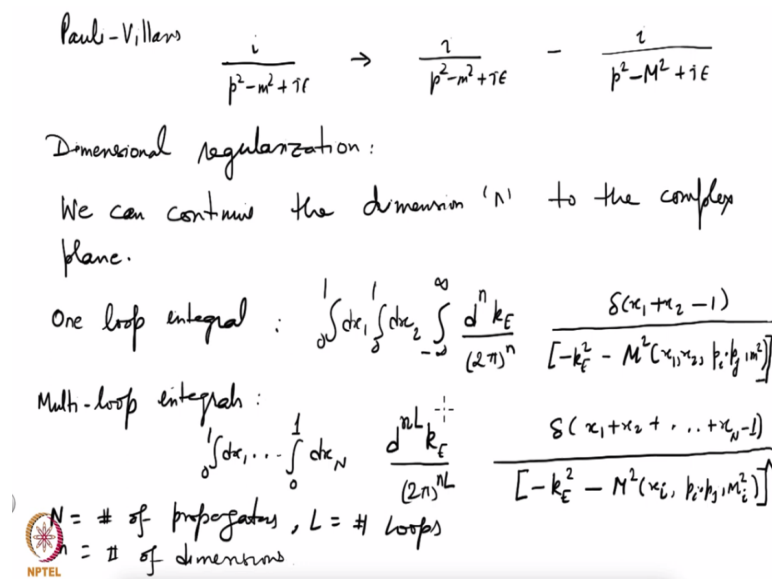 Pauli-Villars i/(p²-m²+iϵ) → i/(p²-m²+iϵ) - i/(p²-M²+iϵ)
Dimensional regularization:
We can continue the dimension 'n' to the complex
plane.
One loop integral : ₀∫¹dx₁ ₀∫¹dx₂ ∫_{-∞}^{∞} dⁿk_E/(2π)ⁿ δ(x₁+x₂-1)/[-k_E² - M²(x₁,x₂, pᵢ·pⱼ, m²)]
Multi-loop integrals :
₀∫¹dx₁ ... ₀∫¹ dx_N d^{nL}k_E/(2π)^{nL} δ(x₁+x₂+...+x_N-1)/[-k_E² - M²(xᵢ, pᵢ·pⱼ, mᵢ²)]^N
N = # of propagators, L = # Loops
n = # of dimensions
NPTEL